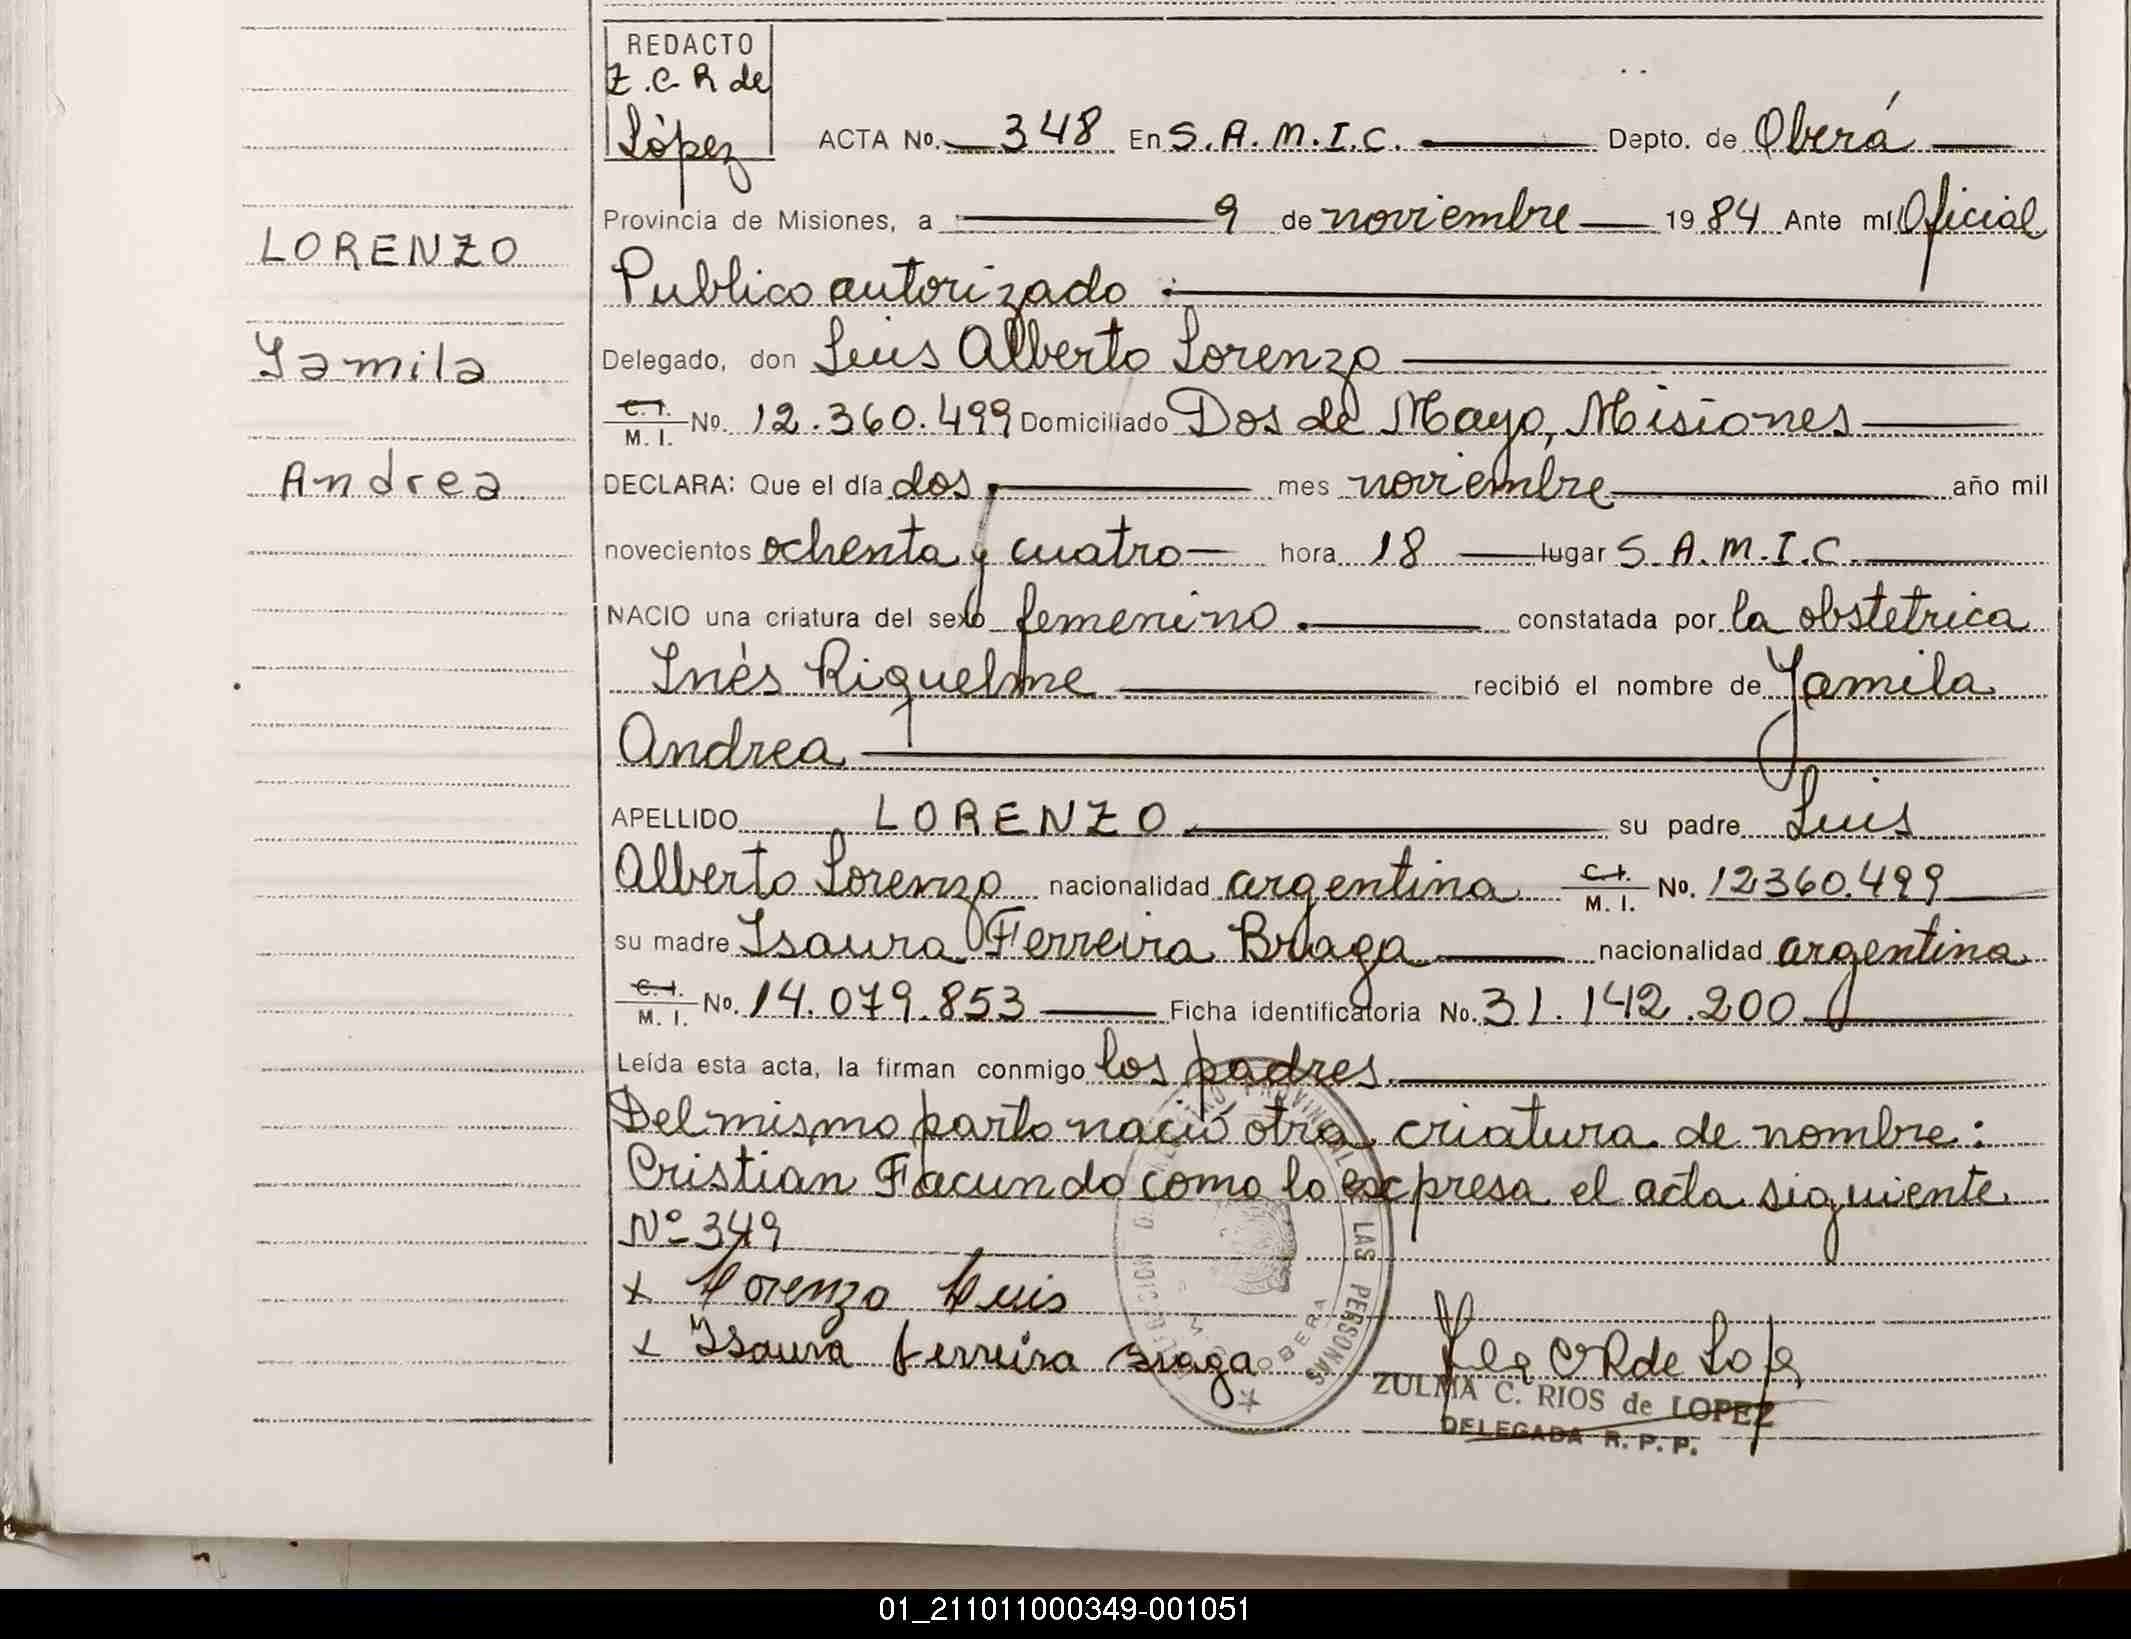 REDACTO
Z.C.R de
López
ACTA No. 348 En S.A.M.I.C. Depto. de Oberá
Provincia de Misiones, a 9 de noviembre 1984 Ante mí Oficial
Publico autorizado
Delegado, don Luis Alberto Lorenzo
C. I. M. I. No. 12.360.499 Domiciliado Dos de Mayo, Misiones
DECLARA: Que el día dos mes noviembre año mil
novecientos ochenta y cuatro hora 18 lugar S.A.M.I.C.
NACIO una criatura del sexo femenino. constatada por la obstetrica
Inés Riquelme recibió el nombre de Yamila
Andrea
APELLIDO LORENZO su padre Luis
Alberto Lorenzo nacionalidad argentina C. I. M. I. No. 12360.499
su madre Isaura Ferreira Braga nacionalidad argentina
C. I. M. I. No. 14.079.853 Ficha identificatoria No. 31.142.200
Leída esta acta, la firman conmigo los padres.
Del mismo parto nació otra criatura de nombre:
Cristian Facundo como lo expresa el acta siguiente
Nº 349
x Lorenzo Luis
x Isaura ferreira Braga
ZULMA C. RIOS de LOPEZ
DELEGADA R. P. P.
LORENZO
Yamila
Andrea
PROVINCIAL LAS PERSONAS
OBERA
01_211011000349-001051